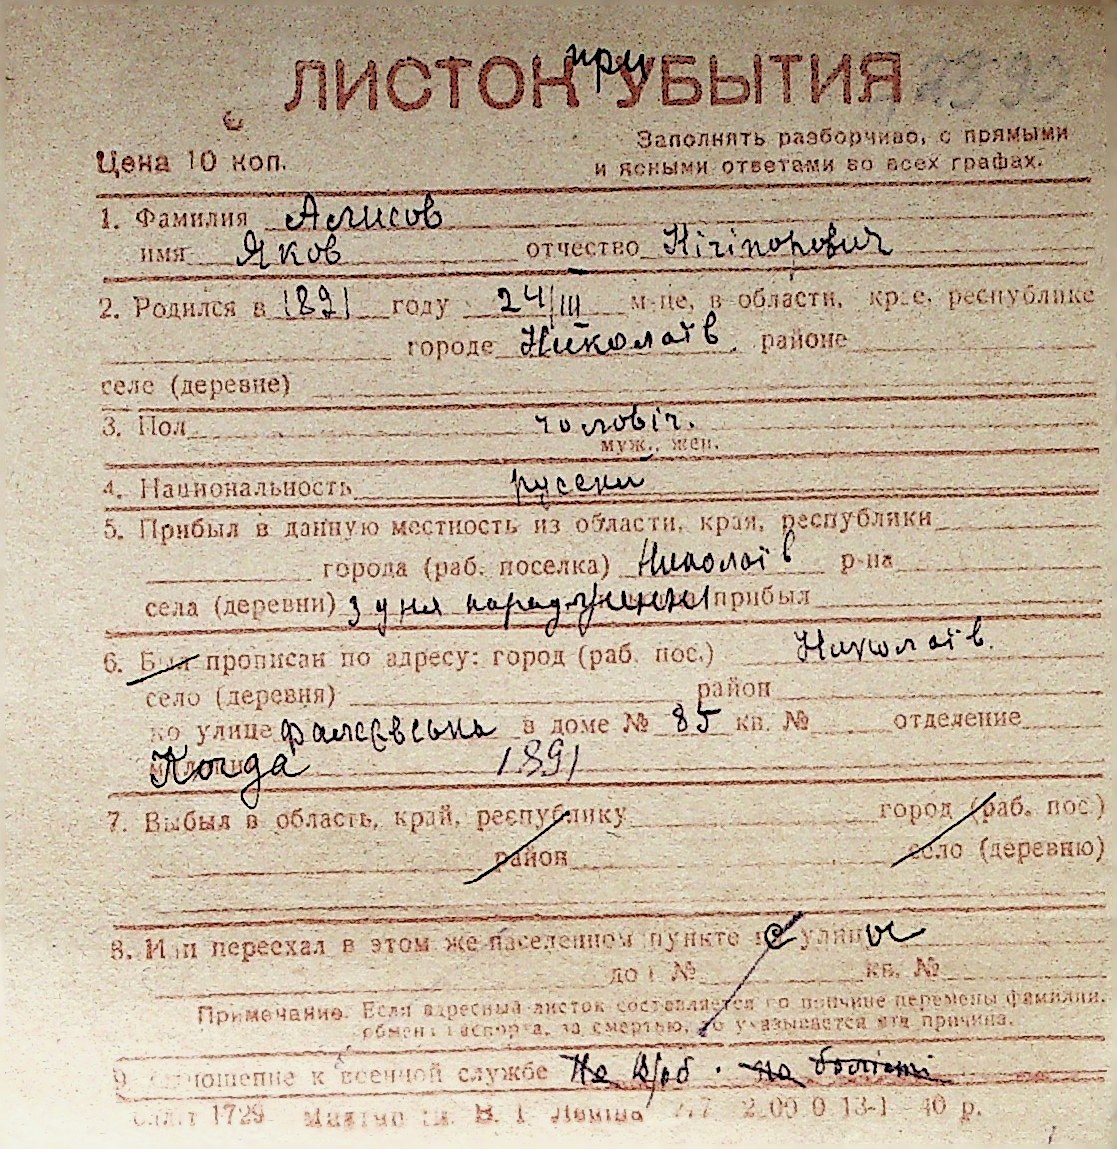 ЛИСТОК при УБЫТИЯ
Цена 10 коп.
Заполнять разборчиво, с прямыми
и ясными ответами во всех графах.
1. Фамилия Алисов
имя Яков отчество Нічіпорович
2. Родился в 1891 году 24/III м-це, в области, крае, республике
городе Николаїв районе
селе (деревне)
3. Пол чоловіч.
муж., жен.
4. Национальность
5. Прибыл в данную местность из области, края, республики
города (раб. поселка) Николаїв р-на
села (деревни) з дня прибыл
6. Был прописан по адресу: город (раб. пос.) Николаїв.
село (деревня) район
по улице Фалєєвська в доме № 85 кв. № отделение
Когда 1891
7. Выбыл в область, край, республику город (раб. пос.)
район село (деревню)
8. Или переехал в этом же населенном пункте с улицы
дом № кв. №
Примечание. Если адресный листок составляется по причине перемены фамилии,
обмена паспорта, за смертью, то указывается эта причина.
9. Отношение к военной службе Не